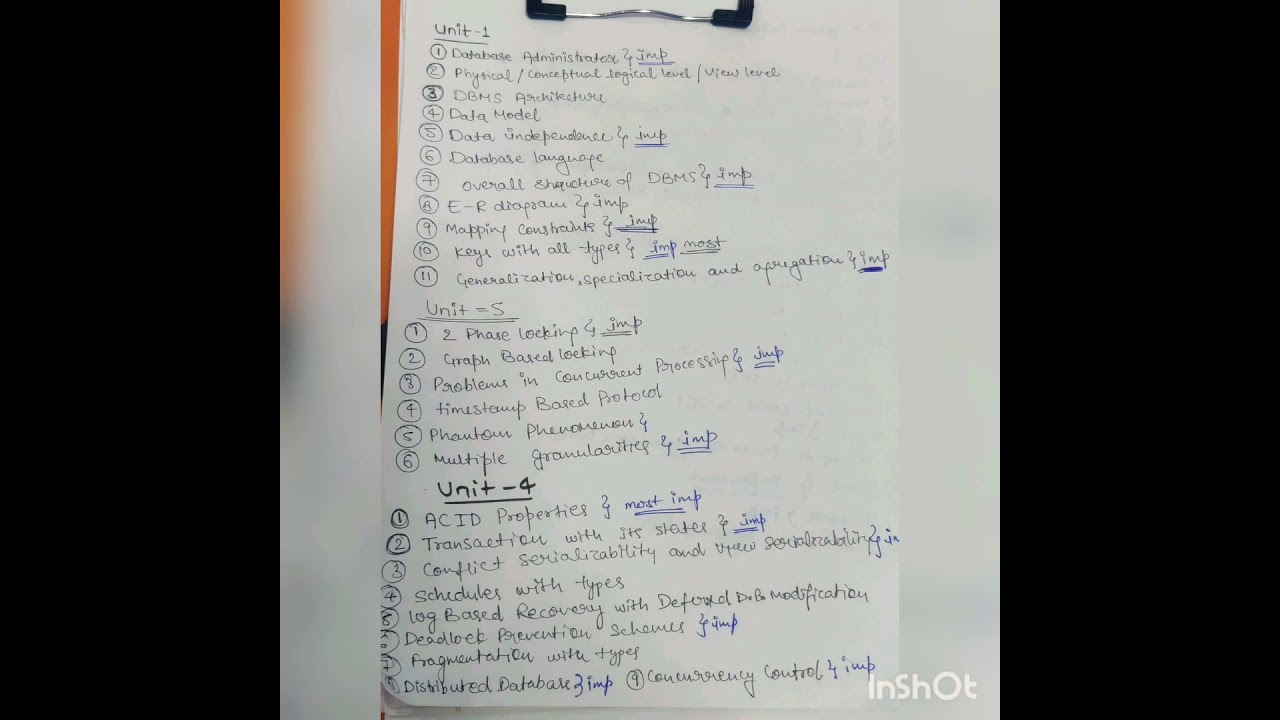 Unit-1
① Database Administrator } imp
② Physical / Conceptual logical level / View level
③ DBMS Architecture
④ Data Model
⑤ Data independence } imp
⑥ Database language
⑦ overall structure of DBMS } imp
⑧ E-R diagram } imp
⑨ Mapping constraints } imp
⑩ Keys with all types } imp most
⑪ Generalization, specialization and agregation } imp
Unit = 5
① 2 Phase locking } imp
② Graph Based locking
③ Problems in Concurrent Processing } imp
④ timestamp Based Protocol
⑤ Phantom Phenomenon }
⑥ Multiple granularities } imp
Unit-4
① ACID Properties } most imp
② Transaction with its states } imp
③ Conflict serializability and view serializability } im
④ Schedules with types
⑤ log Based Recovery with Deferred D.B. Modification
⑥ Deadlock Prevention Schemes } imp
⑦ fragmentation with types
⑧ Distributed Database } imp ⑨ Concurrency Control } imp
InShOt